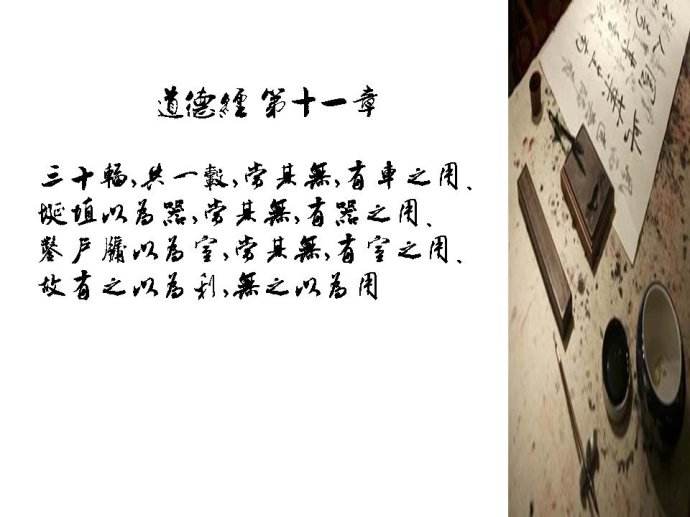 道德經 第十一章
三十輻,共一轂,當其無,有車之用、
埏埴以為器,當其無,有器之用、
鑿戶牖以為室,當其無,有室之用、
故有之以為利,無之以為用